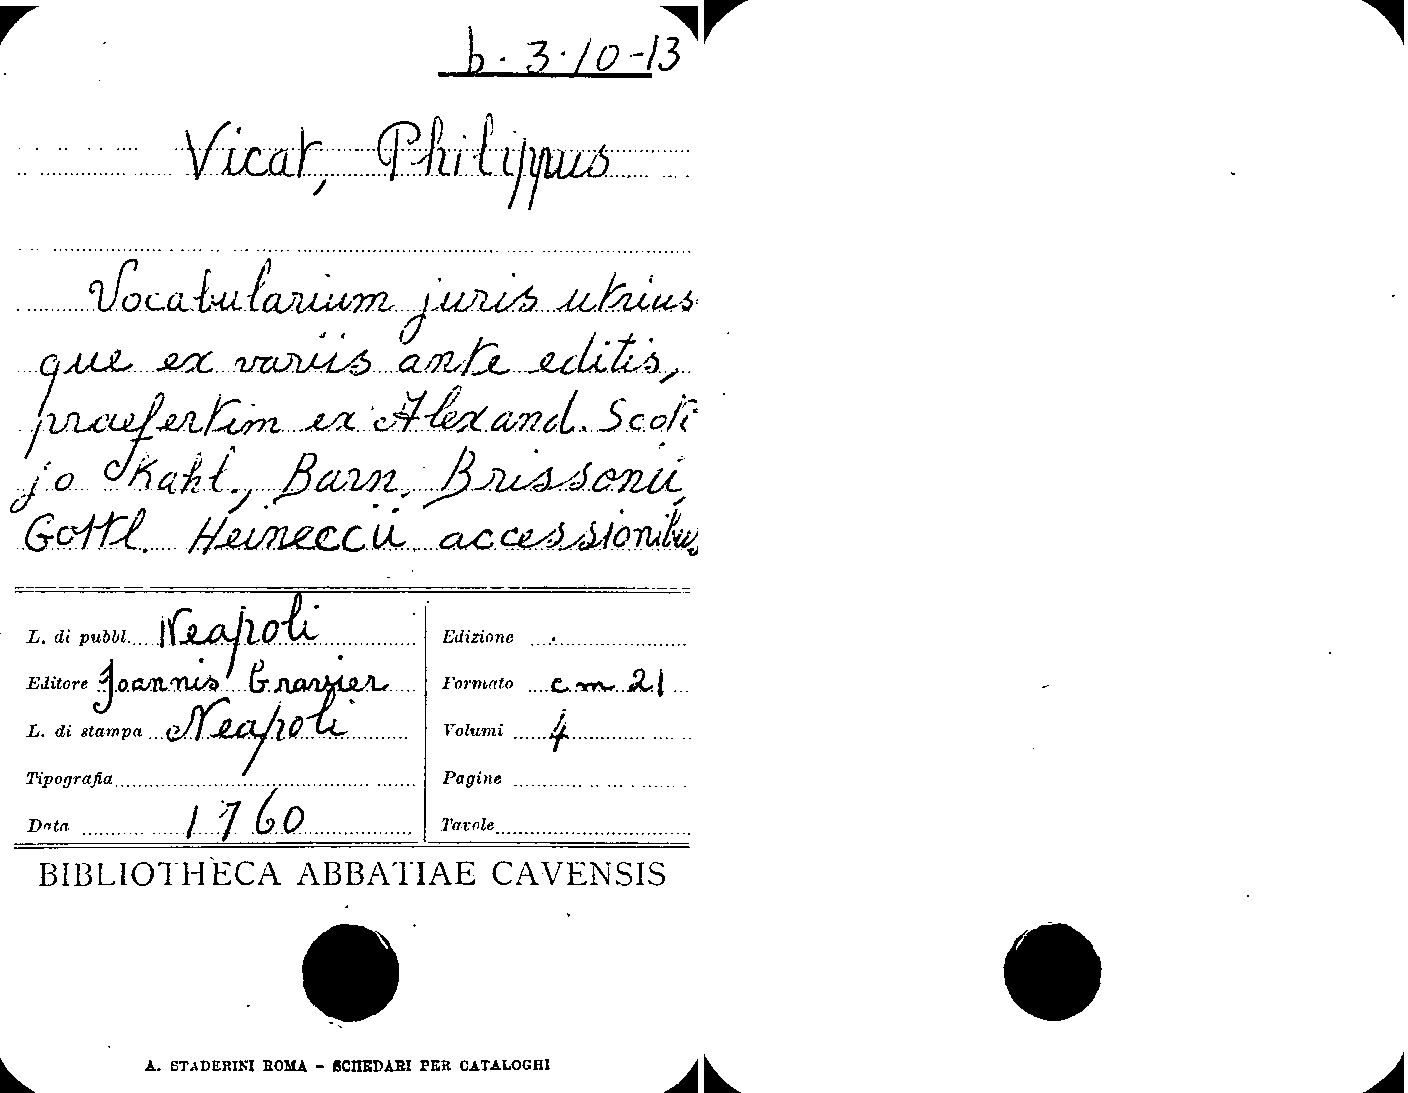 b. 3. 10-13
Vicat, Philippus
Vocabularium juris utrius
que ex variis ante editis,
praefertim ex Alexand. Scoti
jo Kahl., Barn. Brissonii,
Gottl. Heineccii accessionibus
L. di pubbl. Neapoli
Edizione
Editore Joannis Gravier
Formato cm 21
L. di stampa Neapoli
Volumi 4
Tipografia
Pagine
Data 1760
Tavole
BIBLIOTHECA ABBATIAE CAVENSIS
A. STADERINI ROMA - SCHEDARI PER CATALOGHI